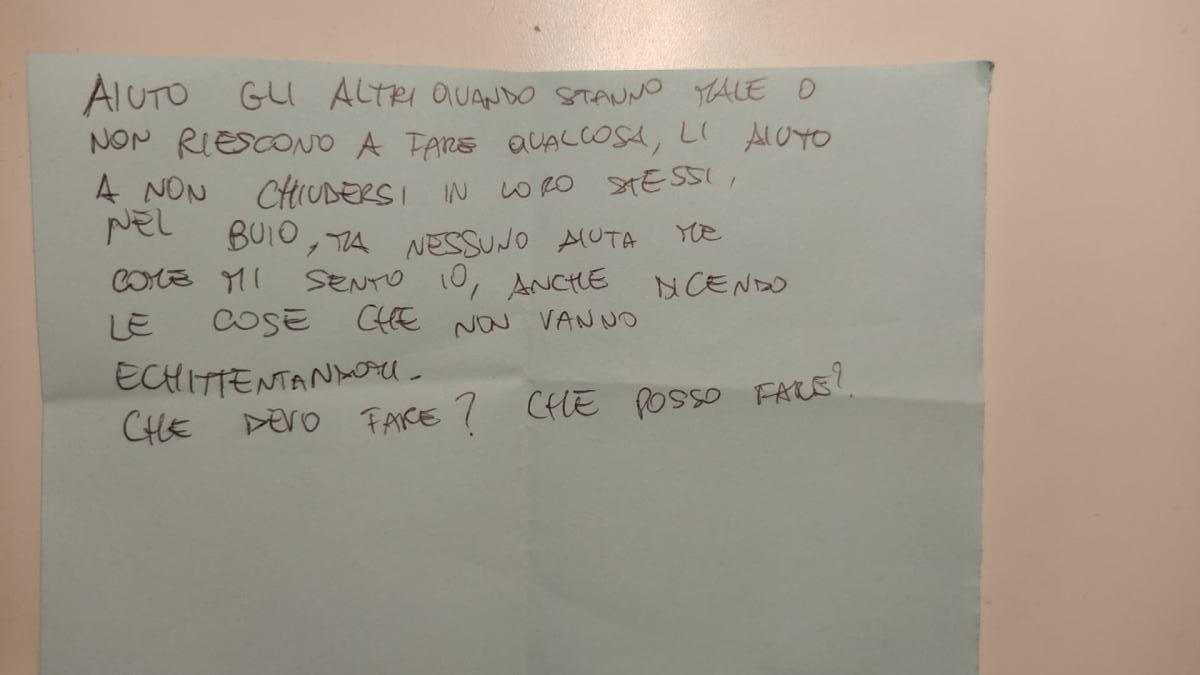 AIUTO GLI ALTRI QUANDO STANNO MALE O
NON RIESCONO A FARE QUALCOSA, LI AIUTO
A NON CHIUDERSI IN LORO STESSI,
NEL BUIO, MA NESSUNO AIUTA ME
COME MI SENTO IO, ANCHE DICENDO
LE COSE CHE NON VANNO
CHE DEVO FARE? CHE POSSO FARE?